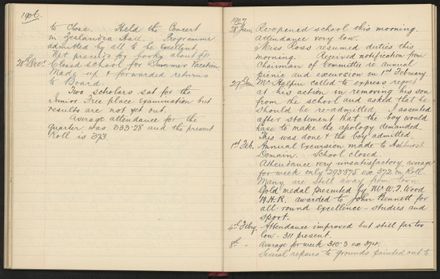 1906.
to Close. Held the Concert
in Zealandia Hall. Programme
admitted by all to be excellent.
Net proceeds for books about
20th Dec. Closed school for Summer Vacation
Made up & forwarded returns
to Board.
Two scholars sat for the
Junior Free place Examination but
results are not yet out.
Average attendance for the
Quarter was and the present
Roll is
1907
28 Jan Re-opened school this morning.
Attendance very low.
Miss Ross resumed duties this
morning. Received notification from
Chairman of Committee re annual
picnic and excursion on 1st February
29 Jan Mr called to express regret
at his action in removing his son
from the school and asked that he
should be readmitted. I assented
after statement that the boy would
have to make the apology demanded.
This was done & the boy admitted.
1st Feb. Annual Excursion made to Ashhurst
Domain. School closed.
Attendance very unsatisfactory average
for week only ex 372 on Roll.
Many are still away from town.
Gold medal presented by Mr W. T. Wood
M.H.R. awarded to John Bennett for
all-round Excellence - studies and
sport.
Feby. Attendance improved but still far too
low - 311 present.
8th - Average for week 310.3 ex
repairs to grounds pointed out to